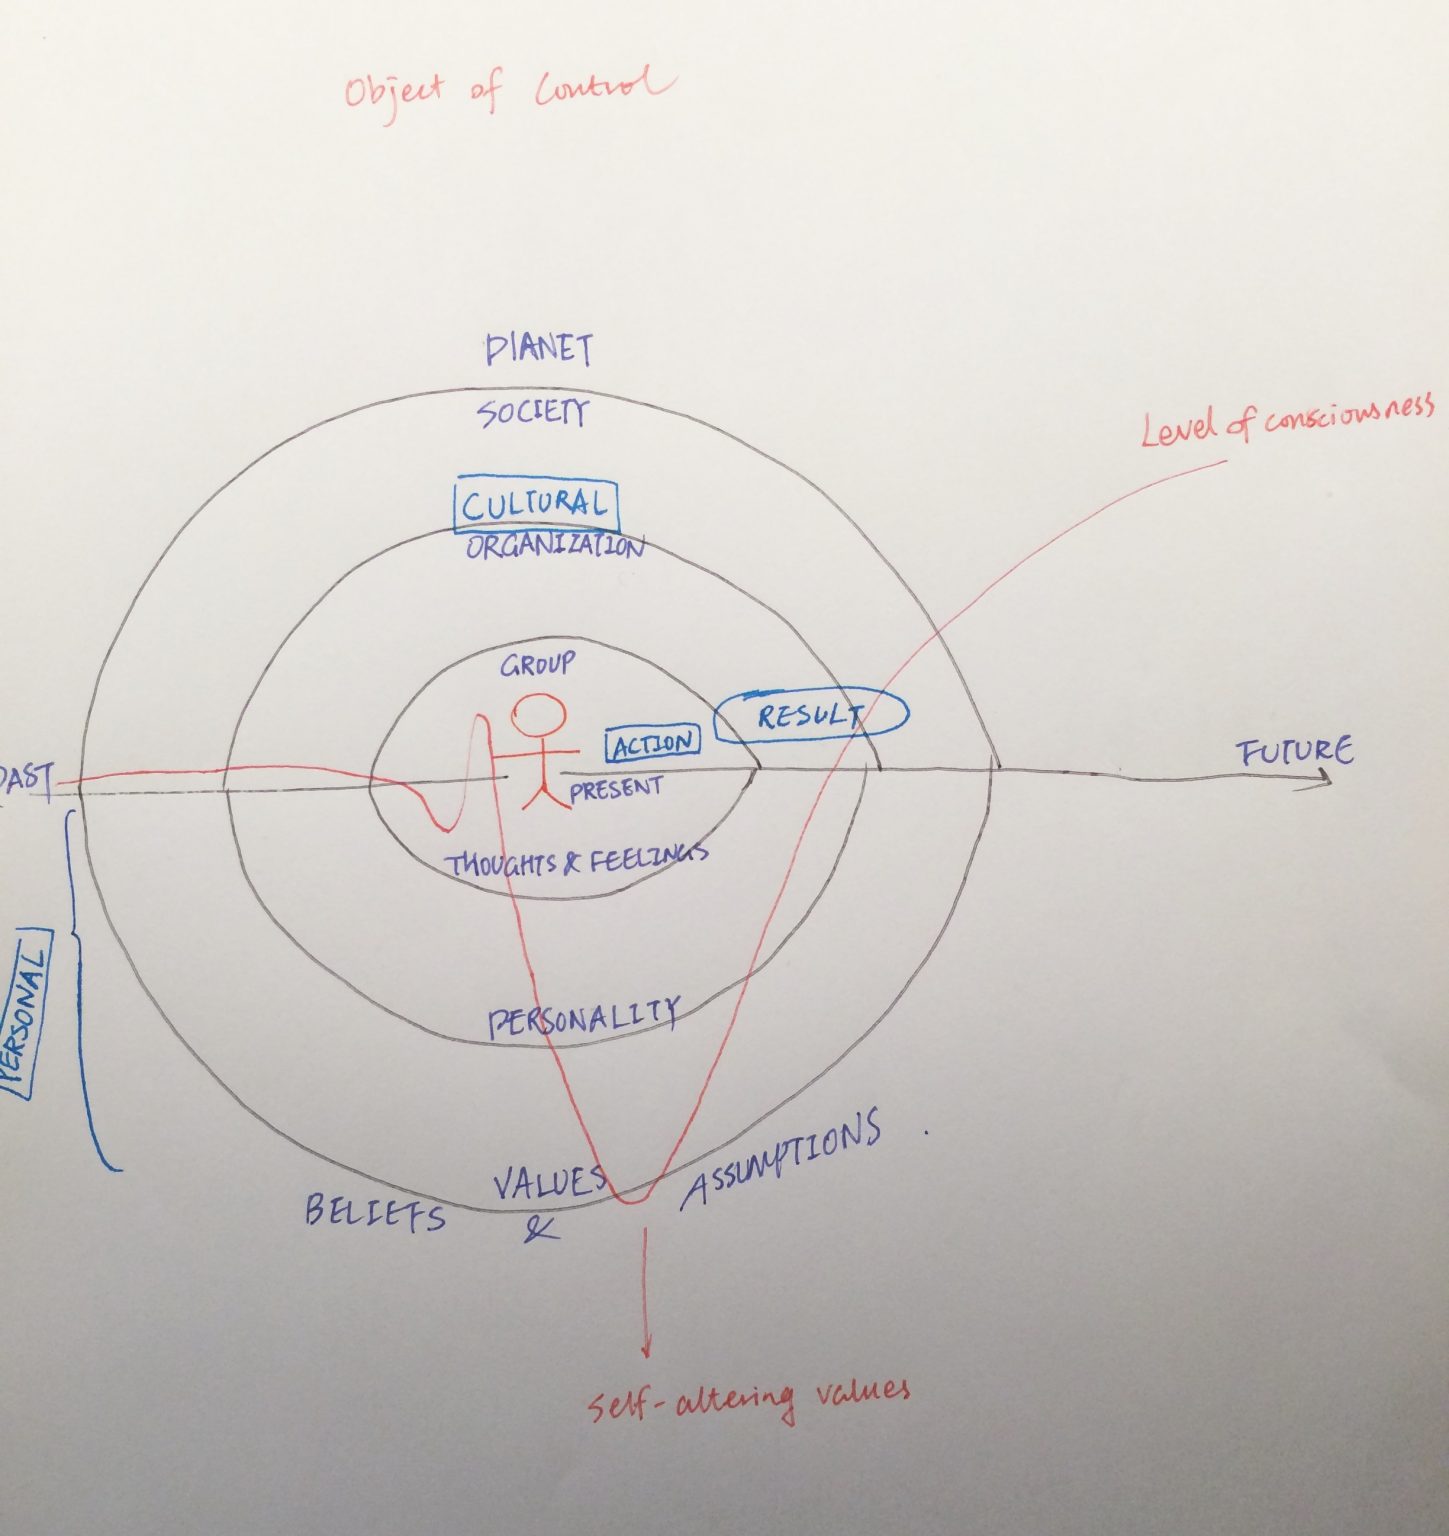 Object of Control
PLANET
SOCIETY
Level of consciousness
CULTURAL
ORGANIZATION
GROUP
RESULT
ACTION
FUTURE
PAST
PRESENT
THOUGHTS & FEELINGS
PERSONAL
PERSONALITY
BELIEFS VALUES & ASSUMPTIONS
Self-altering values